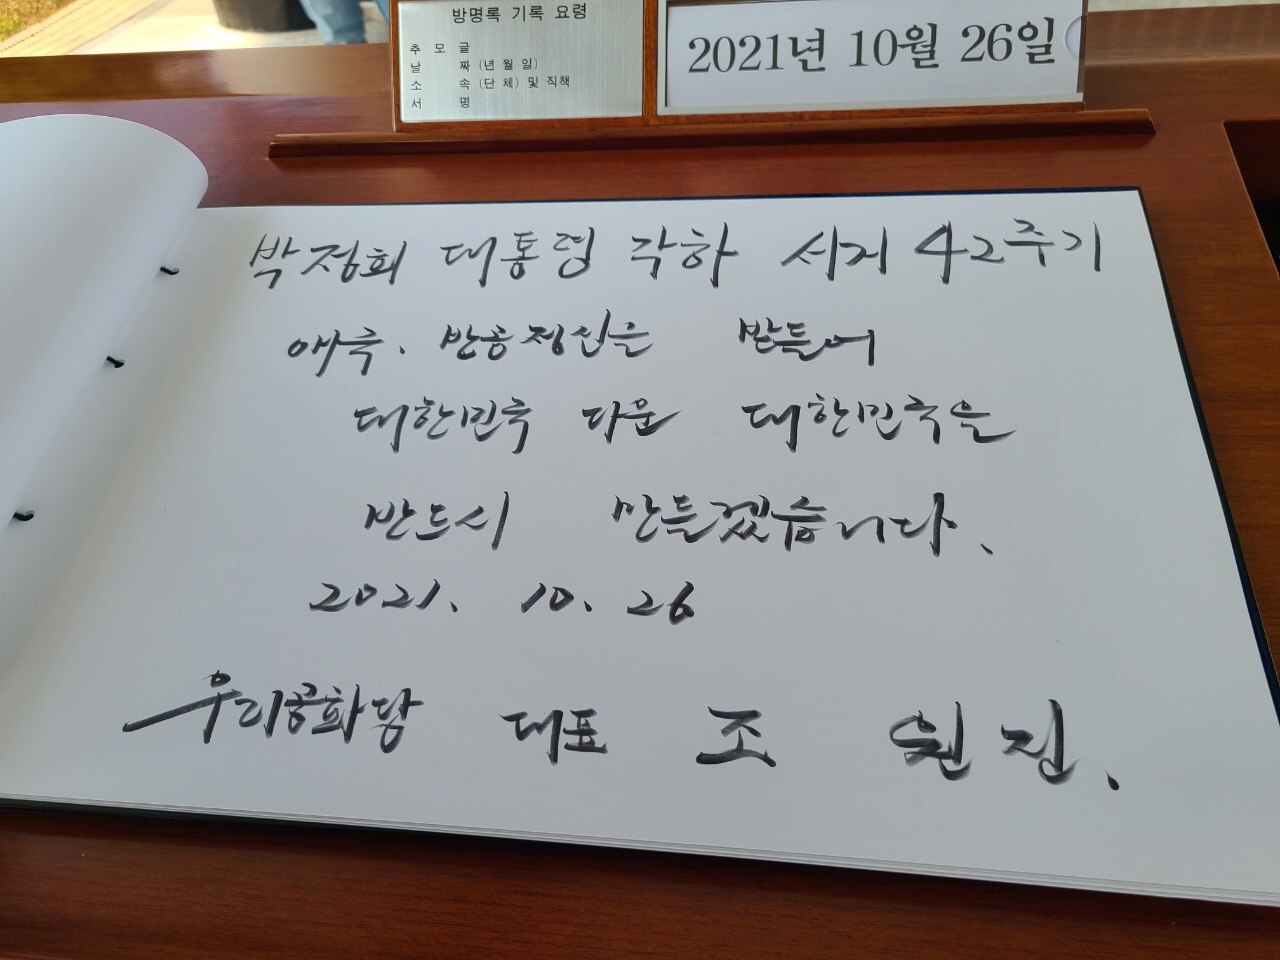 방명록 기록 요령
추 모 글
날 짜 (년 월 일)
소 속 (단 체) 및 직책
서 명
2021년 10월 26일
박정희 대통령 각하 서거 42주기
애국. 반공정신을 받들어
대한민국 다운 대한민국을
반드시 만들겠습니다.
2021. 10. 26
우리공화당 대표 조 원 진.